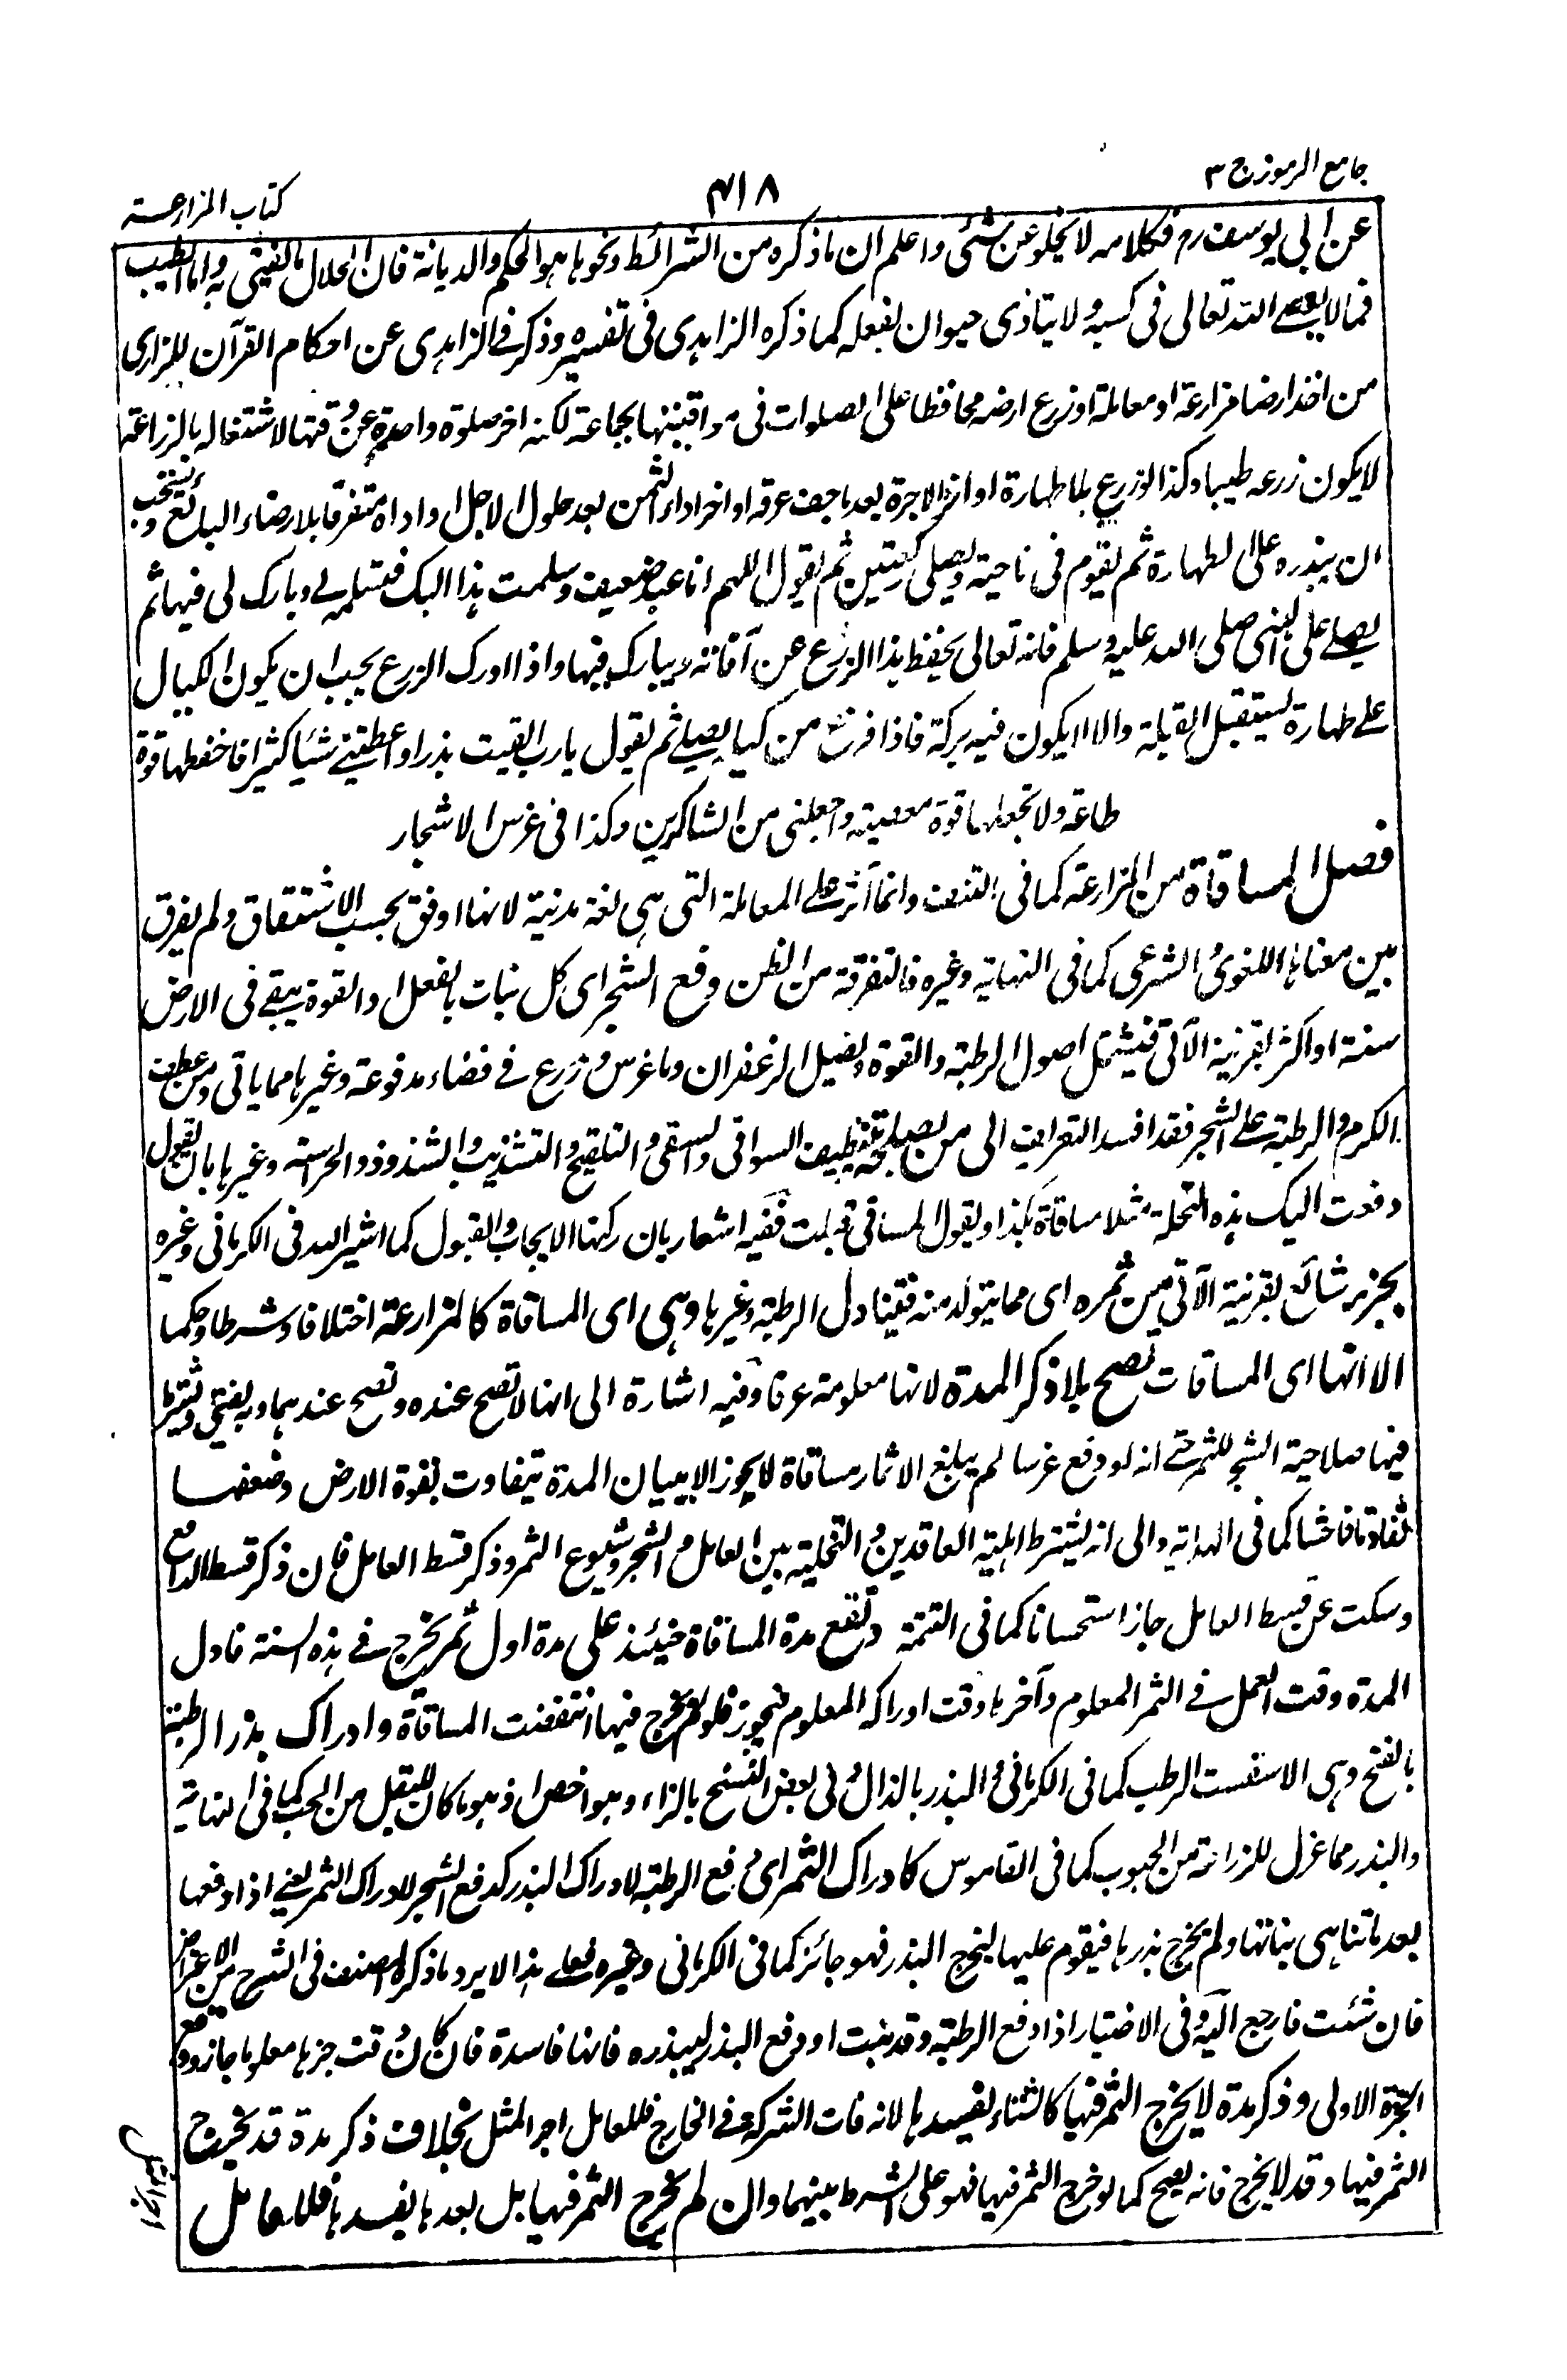 جامع الرموز ج ٣
٤١٨
كتاب المزارعة
عن ابي يوسف رح فكلامه لا يخلو عن شئ واعلم ان ما ذكره من الشرائط ونحوها هو الحكم والديانة فان الحلال ما يفتى به واما الطيب
فما لا يعصى الله تعالى في كسبه ولا يتاذى حيوان بفعله كما ذكره الزاهدي في تفسيره وذكر في الزاهدي عن احكام القرآن للرازي
من اخذ ارضا مزارعة او معاملة او زرع ارضه محافظا على الصلوات في مواقيتها بجماعة لكنه اخر صلوة واحدة عن وقتها لاشتغاله بالزراعة
لا يكون زرعه طيبا وكذا لو زرع بلا طهارة او اخر الاجرة بعد ما جف عرقه او اخر اداء الثمن بعد حلول الاجل او اداه متفرقا بلا رضاء البائع ويستحب
ان يبذره على الطهارة ثم يقوم في ناحية ويصلي ركعتين ثم يقول اللهم انا عبد ضعيف وسلمت هذا اليك فسلمه لي وبارك لي فيها ثم
يصلي على النبي صلى الله عليه وسلم فانه تعالى يحفظ هذا الزرع عن آفاته ويبارك فيها واذا ادرك الزرع يجب ان يكون الكيال
على طهارة يستقبل القبلة والا لا يكون فيه بركة فاذا فرغ من كيله يصلي ثم يقول يا رب القيت بذرا واعطيتني شيأ كثيرا فاحفظها قوة
طاعة ولا تجعلها قوة معصية واجعلني من الشاكرين وكذا في غرس الاشجار
فصل المساقاة من المزارعة كما في النتف وانما آثر على المعاملة التي هي لغة مدنية لانها اوفق بحسب الاشتقاق ولم يفرق
بين معناها اللغوي والشرعي كما في النهاية وغيره فالتفرقة من الظن دفع الشجر اى كل نبات بالفعل او القوة يبقى في الارض
سنة او اكثر بقرينة الآتي فيشمل اصول الرطبة والفوة وبصل الزعفران وما غرس او زرع في فضاء مدفوعة وغيرها مما ياتي ومن عطف
الكرم والرطبة على الشجر فقد افسد التعريف الى من يصلحه بتنظيف السواقي والسقي والتلقيح والتشذيب والشذوذ والحراسة وغيرها بان يقول
دفعت اليك هذه النخلة مثلا مساقاة بكذا ويقول المساقي قبلت ففيه اشعار بان ركنها الايجاب والقبول كما اشير اليه في الكرماني وغيره
بجزء شائع بقرينة الآتي من ثمره اى مما يتولد منه فيتناول الرطبة وغيرها وهي اى المساقاة كالمزارعة اختلافا وشرطا وحكما
الا انها اى المساقات تصح بلا ذكر المدة لانها معلومة عرفا وفيه اشارة الى انها لا تصح عنده وتصح عندهما وبه يفتى ويشترط
فيها صلاحية الشجر للثمر حتى انه لو دفع غرسا لم يبلغ الاثمار مساقاة لا يجوز الا ببيان المدة يتفاوت بقوة الارض وضعفها
تفاوتا فاحشا كما في الهداية والى انه يشترط اهلية العاقدين والتخلية بين العامل والشجر وشيوع الثمر وذكر قسط العامل فان ذكر قسط الدافع
وسكت عن قسط العامل جاز استحسانا كما في التتمة وتقع مدة المساقاة حينئذ على مدة اول ثمر يخرج في هذه السنة فاول
المدة وقت العمل في الثمر المعلوم وآخرها وقت ادراكه المعلوم فيجوز فلو لم يخرج فيها انتقضت المساقاة وادراك بذر الرطبة
بالفتح وهي الاسفست الرطب كما في الكرماني والبذر بالذال وفي بعض النسخ بالزاء وهو اخص اذ هو ما كان للبقل من الحب كما في النهاية
والبذر مما عزل للزراعة من الحبوب كما في القاموس كادراك الثمر اى دفع الرطبة لادراك البذر كدفع الشجر لادراك الثمر يعني اذا دفعها
بعد ما تناهى نباتها ولم يخرج بذرها فيقوم عليها ليخرج البذر فهو جائز كما في الكرماني وغيره فعلى هذا لا يرد ما ذكره المصنف في الشرح من الاعتراض
فان شئت فارجع اليه وفي الاختيار اذا دفع الرطبة وقد نبت او دفع البذر ليبذره فانها فاسدة فان كان وقت جزها معلوما جاز ووقع
الجزة الاولى وذكر مدة لا يخرج الثمر فيها كالشتاء يفسدها لانه فات الشركة في الخارج فللعامل اجر المثل بخلاف ذكر مدة قد يخرج
الثمر فيها وقد لا يخرج فانه يصح كما لو خرج الثمر فيها فهو على الشرط بينهما وان لم يخرج الثمر فيها بل بعدها يفسدها فللعامل
اجر المثل